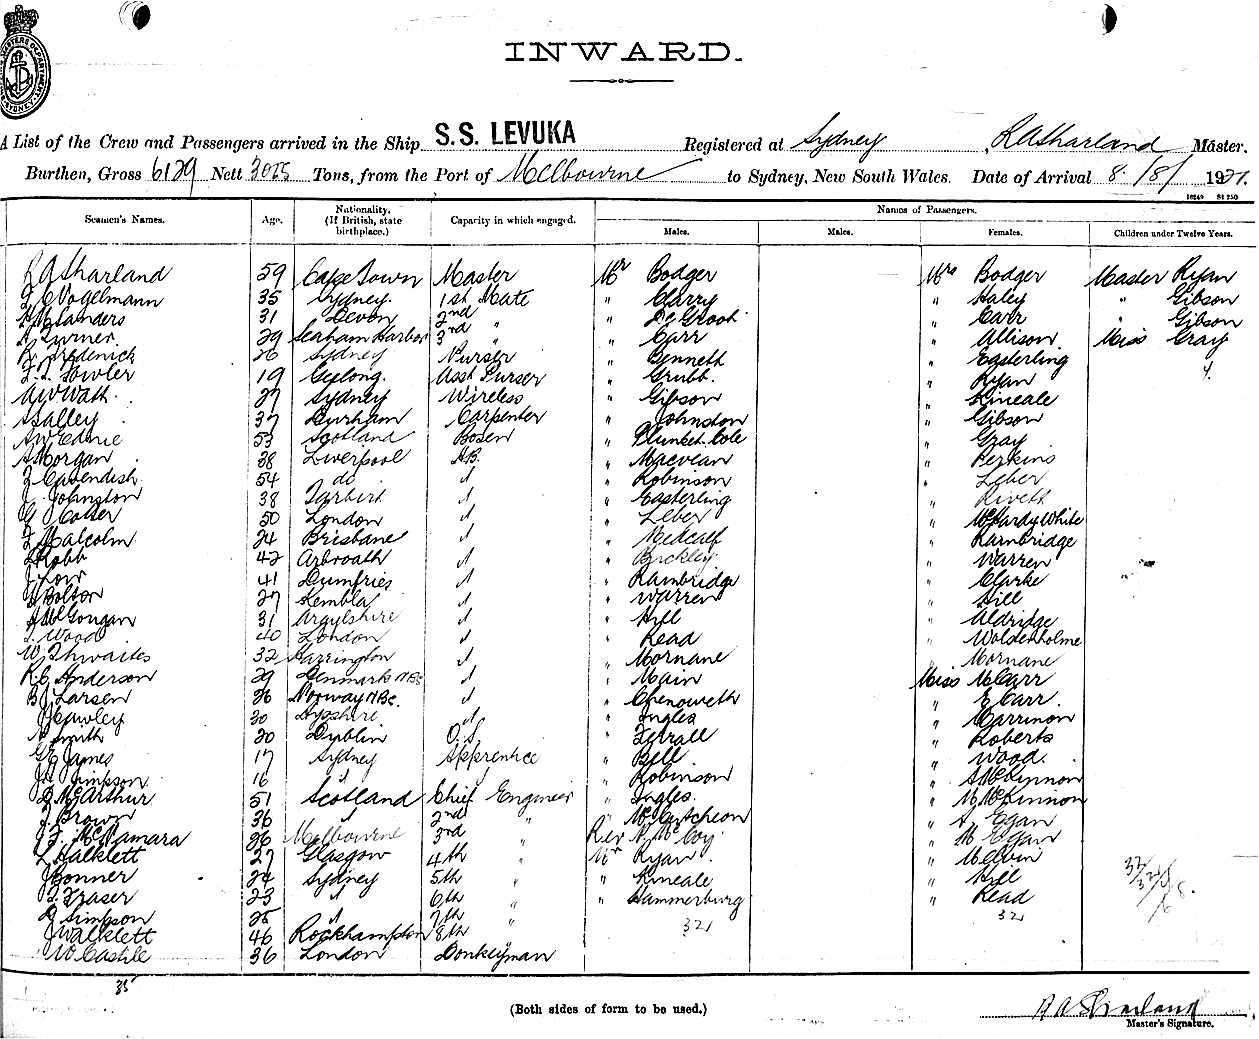 INWARD.
A List of the Crew and Passengers arrived in the Ship S.S. LEVUKA Registered at Sydney, R A Sharland Master.
Burthen, Gross 6129 Nett 3025 Tons, from the Port of Melbourne to Sydney, New South Wales. Date of Arrival 8/8/1921.
16249 S1 250
Seamen's Names. Age. Nationality. (If British, state birthplace.) Capacity in which engaged. Names of Passengers.
Males. Males. Females. Children under Twelve Years.
R A Sharland 59 Cape Town Master Mr Bodger Mrs Bodger Master Ryan
Vogelmann 35 Sydney 1st Mate " Clarry " Haley " Gibson
Sanders 31 Devon 2nd " " De Groot " Carr " Gibson
Turner 29 Seaham Harbor 3rd " " Carr " Allison Miss Gray
Frederick 26 Sydney Purser " Bennett " Easterling 4.
Fowler 19 Geelong Asst Purser " Grubb " Ryan
27 Sydney Wireless " Gibson " Kineale
37 Durham Carpenter " Johnston " Gibson
53 Scotland Bosen " Plunket Cole " Gray
Morgan 38 Liverpool A.B. " Macvean " Perkins
Cavendish 54 do " Robinson " Leber
J Johnston 38 Tarbert " Easterling " Rivett
50 London " Leber " McHardy White
Malcolm 24 Brisbane " Metcalf " Rambridge
Robb 42 Arbroath " Bickley " Warren
J Low 41 Dumfries " Rambridge " Clarke
Bolton 27 Kembla " Warren " Hill
McGougan 31 Argylshire " Hill " Aldridge
Wood 40 London " Read " Wolstenholme
W Thwaites 32 Harrington " Mornane " Mornane
Anderson 29 Denmark NBS " Main Miss M Carr
Larsen 26 Norway NBS " Chenoweth " E Carr
Cawley 30 " Ingles "
Smith 20 Dublin O.S. " " Roberts
James 17 Sydney Apprentice " Bell " Wood
Simpson 16 " Robinson " A McKinnon
McArthur 51 Scotland Chief Engineer " Ingles " M McKinnon
Brown 36 2nd " " McCutcheon " A Egan
McNamara 26 Melbourne 3rd Rev N McCoy " M Egan
Halklett 27 Glasgow 4th " Mr Ryan " Melvin
Bonner 24 Sydney 5th " " Kineale " Hill
Fraser 23 6th " " Hammerburg " Read
Simpson 25 7th " 32 32
Walklett 46 Rockhampton 8th
W Castle 36 London Donkeyman
35
(Both sides of form to be used.)
R A Sharland
Master's Signature.